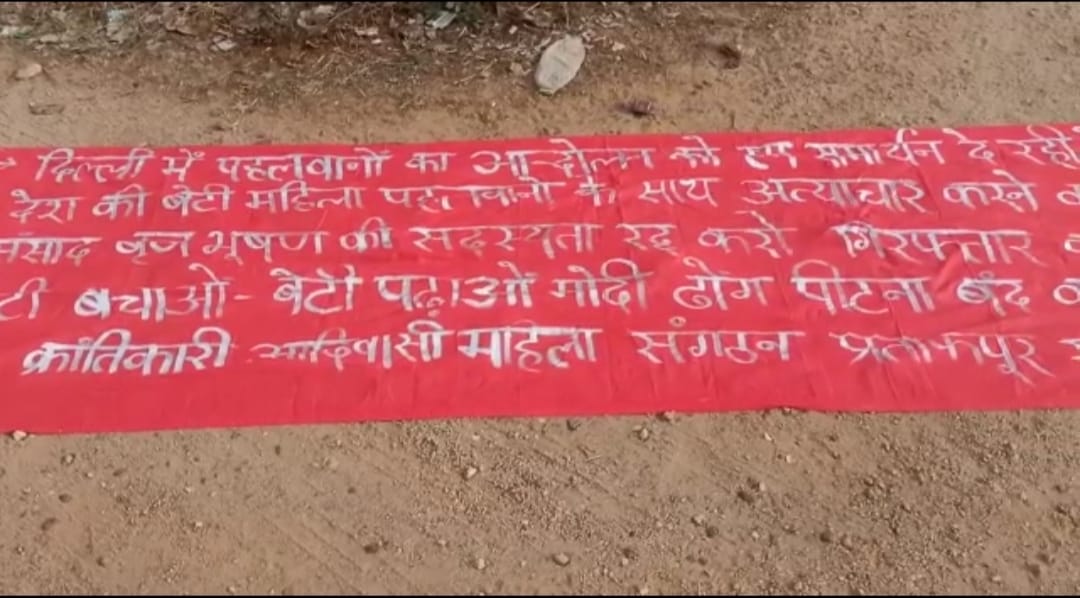 दिल्ली में पहलवानों का आन्दोलन को हम समर्थन दे रही
देश की बेटी महिला पहलवानों के साथ अत्याचार करने
संसाद बृज भूषण की सदस्यता रद्द करो गिरफ्तार
टी बचाओ - बेटी पढ़ाओ मोदी ढोंग पीटना बंद
क्रांतिकारी आदिवासी महिला संगठन प्रतापपुर